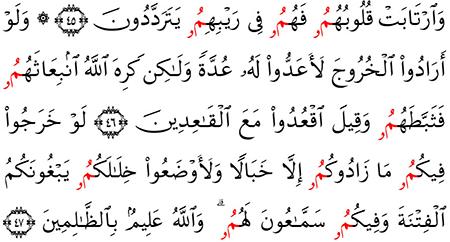 وَٱرْتَابَتْ قُلُوبُهُمُۥ فَهُمُۥ فِى رَيْبِهِمُۥ يَتَرَدَّدُونَ ٤٥ ۞ وَلَوْ
أَرَادُوا۟ ٱلْخُرُوجَ لَأَعَدُّوا۟ لَهُۥ عُدَّةً وَلَٰكِن كَرِهَ ٱللَّهُ ٱنۢبِعَاثَهُمُۥ
فَثَبَّطَهُمُۥ وَقِيلَ ٱقْعُدُوا۟ مَعَ ٱلْقَٰعِدِينَ ٤٦ لَوْ خَرَجُوا۟
فِيكُمُۥ مَا زَادُوكُمُۥ إِلَّا خَبَالًا وَلَأَوْضَعُوا۟ خِلَٰلَكُمُۥ يَبْغُونَكُمُ
ٱلْفِتْنَةَ وَفِيكُمُۥ سَمَّٰعُونَ لَهُمُۥ ۗ وَٱللَّهُ عَلِيمُۢ بِٱلظَّٰلِمِينَ ٤٧